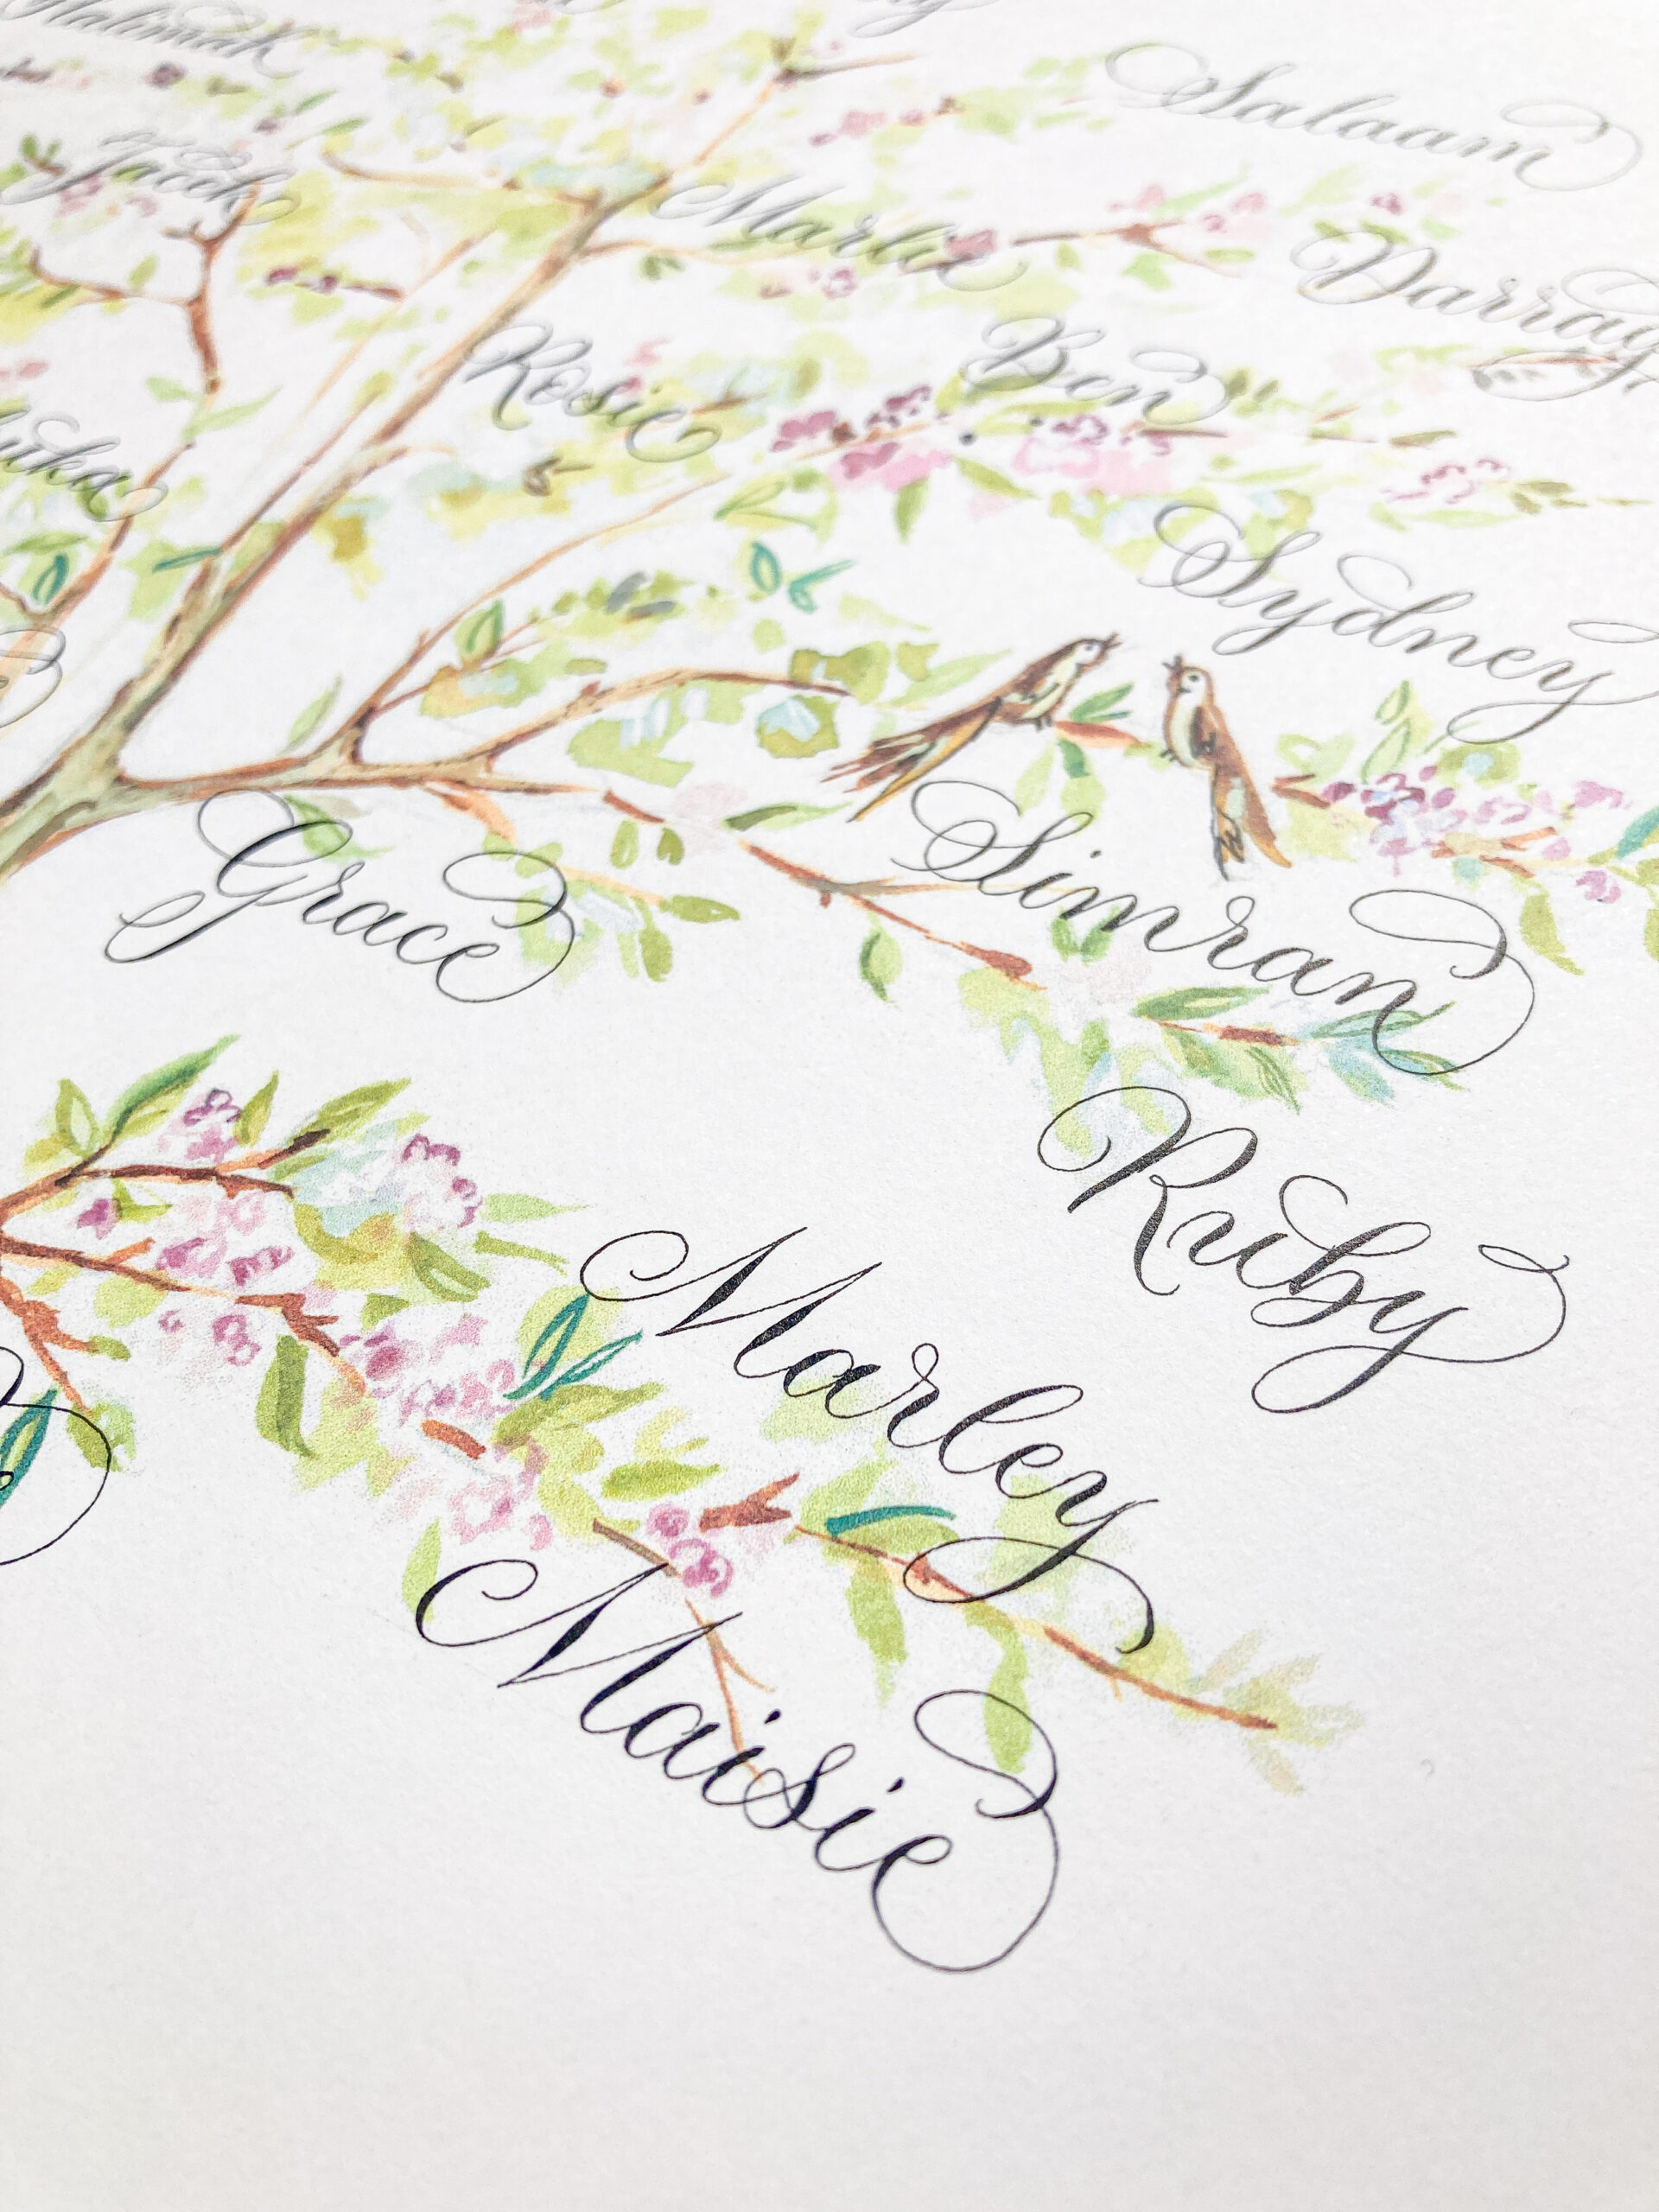 Halimah
Salaam
Jacek
Marlie
Rosie
Ben
Sydney
Grace
Simran
Ruby
Marley
Maisie